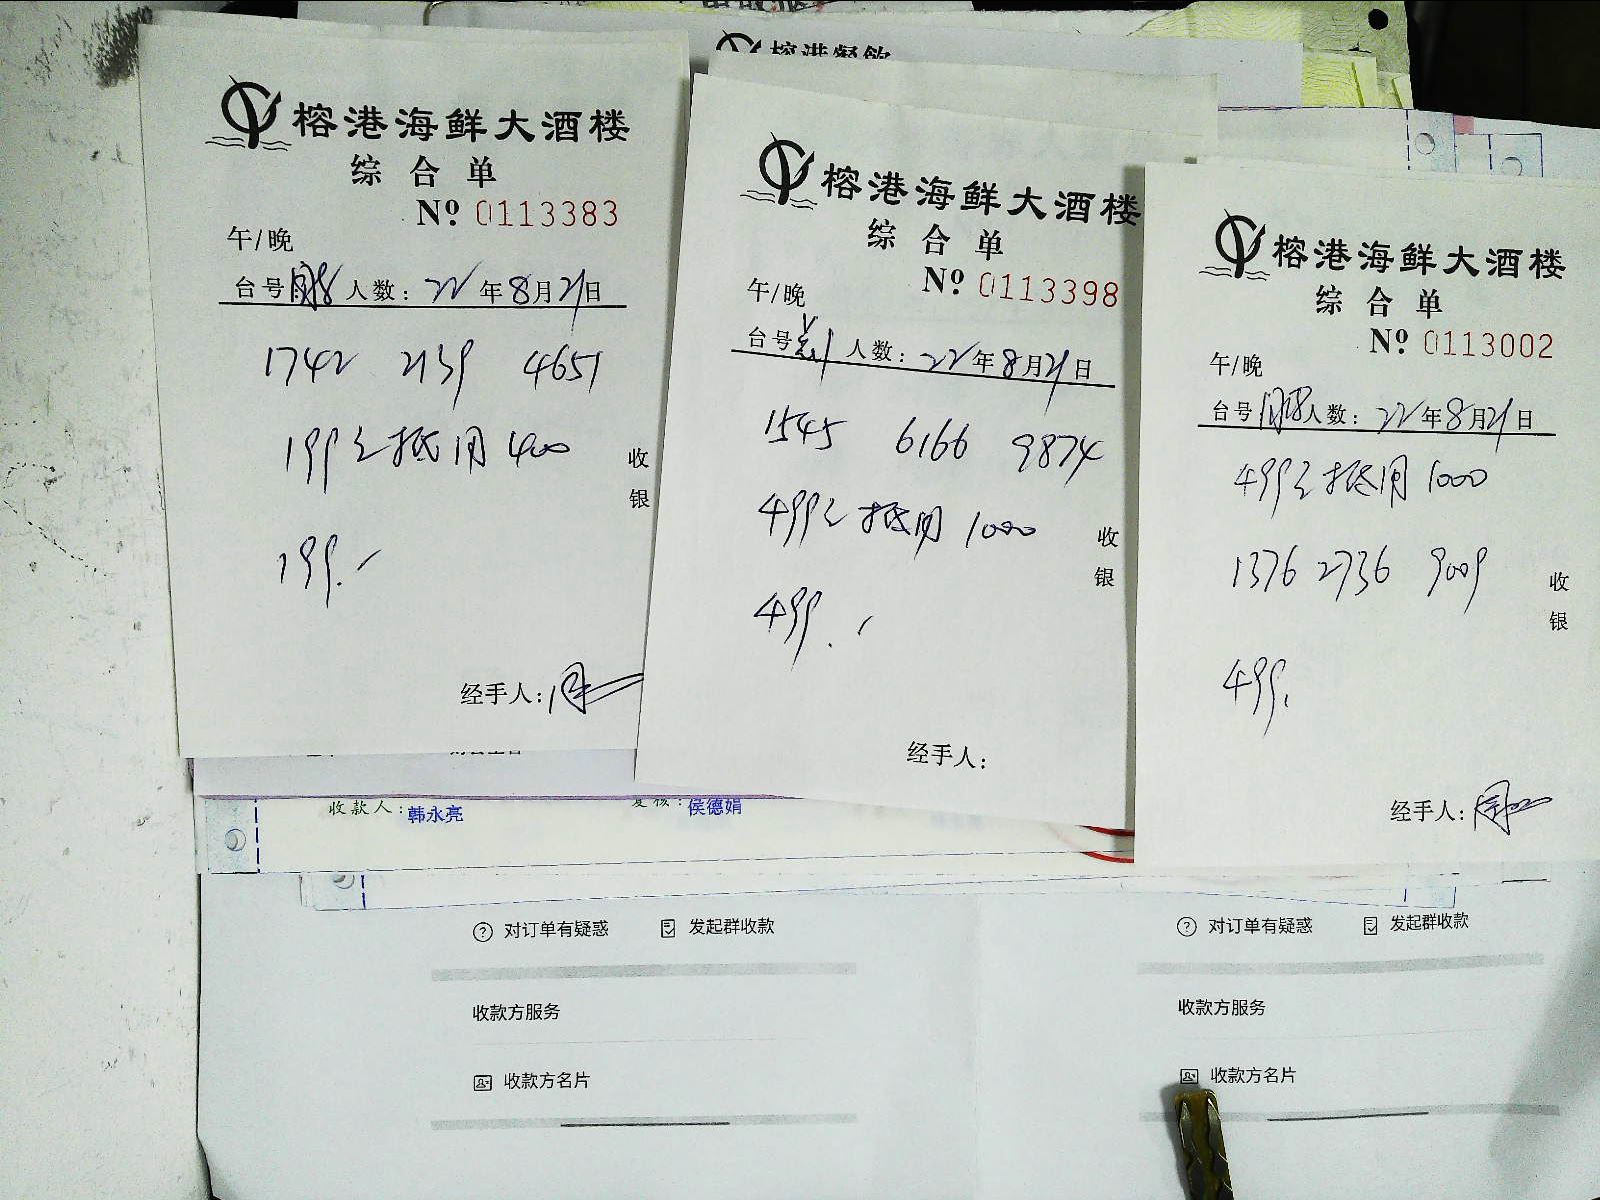 榕港餐飮
榕港海鲜大酒楼
综合单
№ 0113383
午/晚
台号 人数: 22年8月21日
1742 2139 4651
199元抵用400
199.-
收银
经手人:
榕港海鲜大酒楼
综合单
№ 0113398
午/晚
台号 人数: 22年8月21日
1545 6166 9874
499元抵用1000
499.-
收银
经手人:
榕港海鲜大酒楼
综合单
№ 0113002
午/晚
台号 人数: 22年8月21日
499元抵用1000
1376 2736 9009
499.
收银
经手人:
收款人:韩永亮
复核:侯德娟
对订单有疑惑 发起群收款
收款方服务
收款方名片
对订单有疑惑 发起群收款
收款方服务
收款方名片